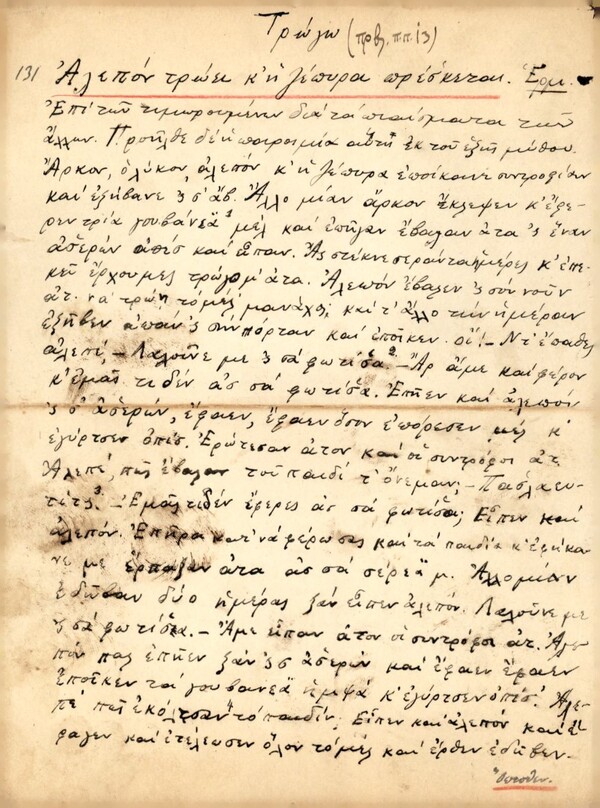 Τρώγω (πρβλ. π.π. 13)
131 Ἀλεπόν τρώει κ' ἡ ζέπυρα πρέσκεται. Ἐρμ.
Ἐπὶ τῶν τιμωρουμένων διὰ τὰ πταίσματα τῶν
ἄλλων. Προῆλθε δὲ ἡ παροιμία αὕτη ἐκ τοῦ ἑξῆς μύθου.
Ἄρκον, ὁ λύκον, ἀλεπόν κ' ἡ ζέπυρα ἐποίκανε συντροφίαν
καὶ ἐξήβανε 'ς σ' ἄβ. Ἄλλο μίαν ἄρκον ἔκλεψεν κ' ἔφε-
ρεν τρία γουβάνεα̈ ¹ μέλ καὶ ἐπῆγαν ἔβαλαν ἄτα 'ς ἕναν
ἀσ̌ερών ἀπέσ καὶ εἶπαν. Ἂς στέκνε σεράντα ἡμέρες κ' ἐπε-
κεῖ ἔρχουμες τρώγομ' ἄτα. Ἀλεπόν ἔβαλεν 'ς σὸν νοῦν
ἀτ' νὰ τρώῃ τὸ μέλ' μαναχός καὶ τ' ἄλλο τὴν ἡμέραν
ἐξῆβεν ἀπάν' 'ς σὴν πόρταν καὶ ἐποῖκεν οἴ! – Ντ' ἔπαθες
ἀλεπέ, – Λαλοῦνε με 'ς σὰ φωτίσ̌α̈ ². – Ἂρ ἄμε καὶ φέρον
κ' ἐμᾶς τιδέν ἀσ σὰ φωτίσ̌α̈. Ἐπῆεν καὶ ἀλεπόν
'ς σ' ἀσ̌ερών, ἔφαεν, ἔφαεν ὅσον ἐπόρεσεν μέλ κ'
ἐγύρτσεν ὀπίσ'. Ἐρώτεσαν ἄτον καὶ οἱ συντρόφοι ἀτ'.
Ἀλεπέ, πῶς ἔβαλαν τοῦ παιδί τ' ὄνεμαν; – Πασ̌λαευ-
τίτς ³. – Ἐμᾶς τιδέν ἔφερες ἀσ σὰ φωτίσ̌α̈; Εἶπεν καὶ
ἀλεπόν. Ἐπῆρα κάτ' νὰ φέρω σας καὶ τὰ παιδία κ' ἐφῆκα-
νε με ἔρπαξαν ἄτα ἀσ σὰ σ̌έρεα̈ μ'. Ἄλλο μίαν
ἐδέβαν δύο ἡμέρας ξάν εἶπεν ἀλεπόν. Λαλοῦνε με
'ς σὰ φωτίσ̌α̈. – Ἄμε εἶπαν ἄτον οἱ συντρόφοι ἀτ'. Ἀλε-
πόν πας ἐπῆεν ξάν 'ς σ' ἀσ̌ερών καὶ ἔφαεν ἔφαεν
ἐποῖκεν τὰ γουβάνεα̈ ἡμψά κ' ἐγύρτσεν ὀπίσ'. Ἀλε-
πέ πῶς ἐκόλτσαν τὸ παιδίν; Εἶπεν καὶ ἀλεπόν καὶ ἔ-
φαγεν καὶ ἐτέλεωσεν ὅλον τὸ μέλ καὶ ἔρθεν ἐδέβεν.
Ὄπισθεν.